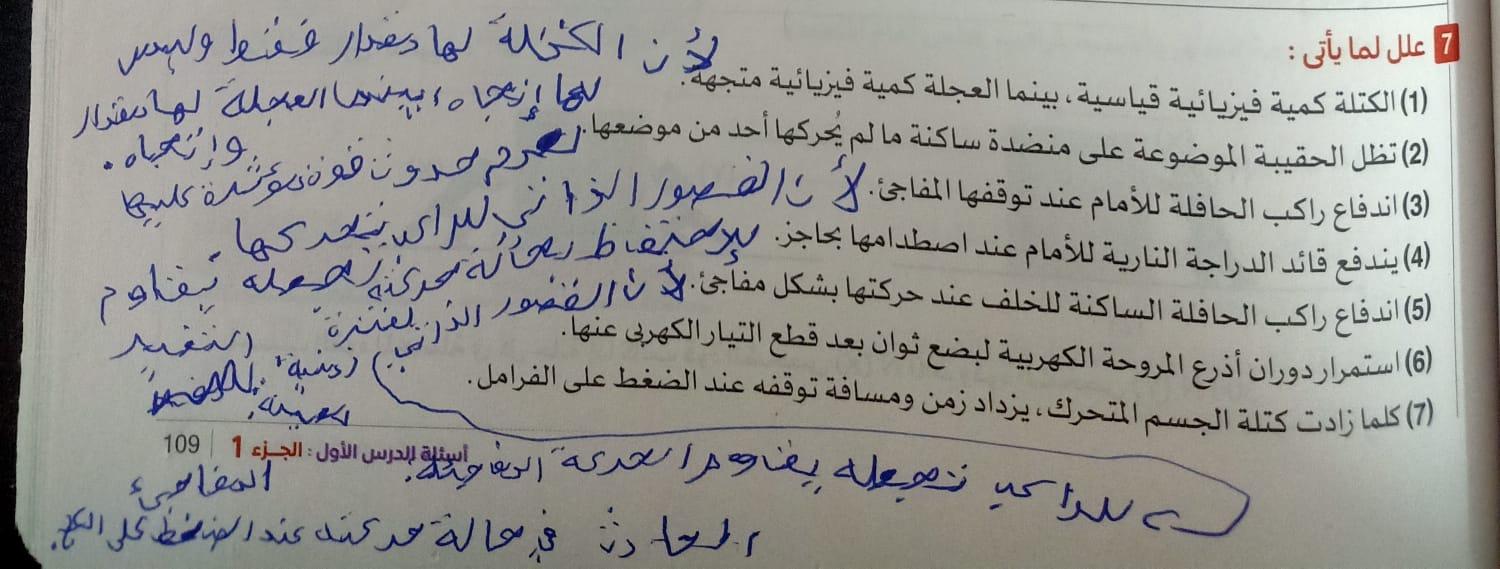 7 علل لما يأتى :
لأن الكتلة لها مقدار فقط وليس
(1) الكتلة كمية فيزيائية قياسية، بينما العجلة كمية فيزيائية متجهة.
لها إتجاه، بينما العجلة لها مقدار
وإتجاه.
(2) تظل الحقيبة الموضوعة على منضدة ساكنة ما لم يُحركها أحد من موضعها.
لعدم حدوث قوة مؤثرة عليها
(3) اندفاع راكب الحافلة للأمام عند توقفها المفاجئ.
لأن القصور الذاتي للراكب
(4) يندفع قائد الدراجة النارية للأمام عند اصطدامها بحاجز.
للاحتفاظ بحالة حركته
(5) اندفاع راكب الحافلة الساكنة للخلف عند حركتها بشكل مفاجئ.
لأن القصور الذاتي
(6) استمرار دوران أذرع المروحة الكهربية لبضع ثوان بعد قطع التيار الكهربى عنها.
لفترة زمنية معينة.
(7) كلما زادت كتلة الجسم المتحرك، يزداد زمن ومسافة توقفه عند الضغط على الفرامل.
يجعله يقاوم التغير
أسئلة الدرس الأول : الجزء 1 | 109
للراكب تجعله يقاوم الحركة المفاجئة.
المفاجئ
الحادث في حالة حركته عند الضغط على